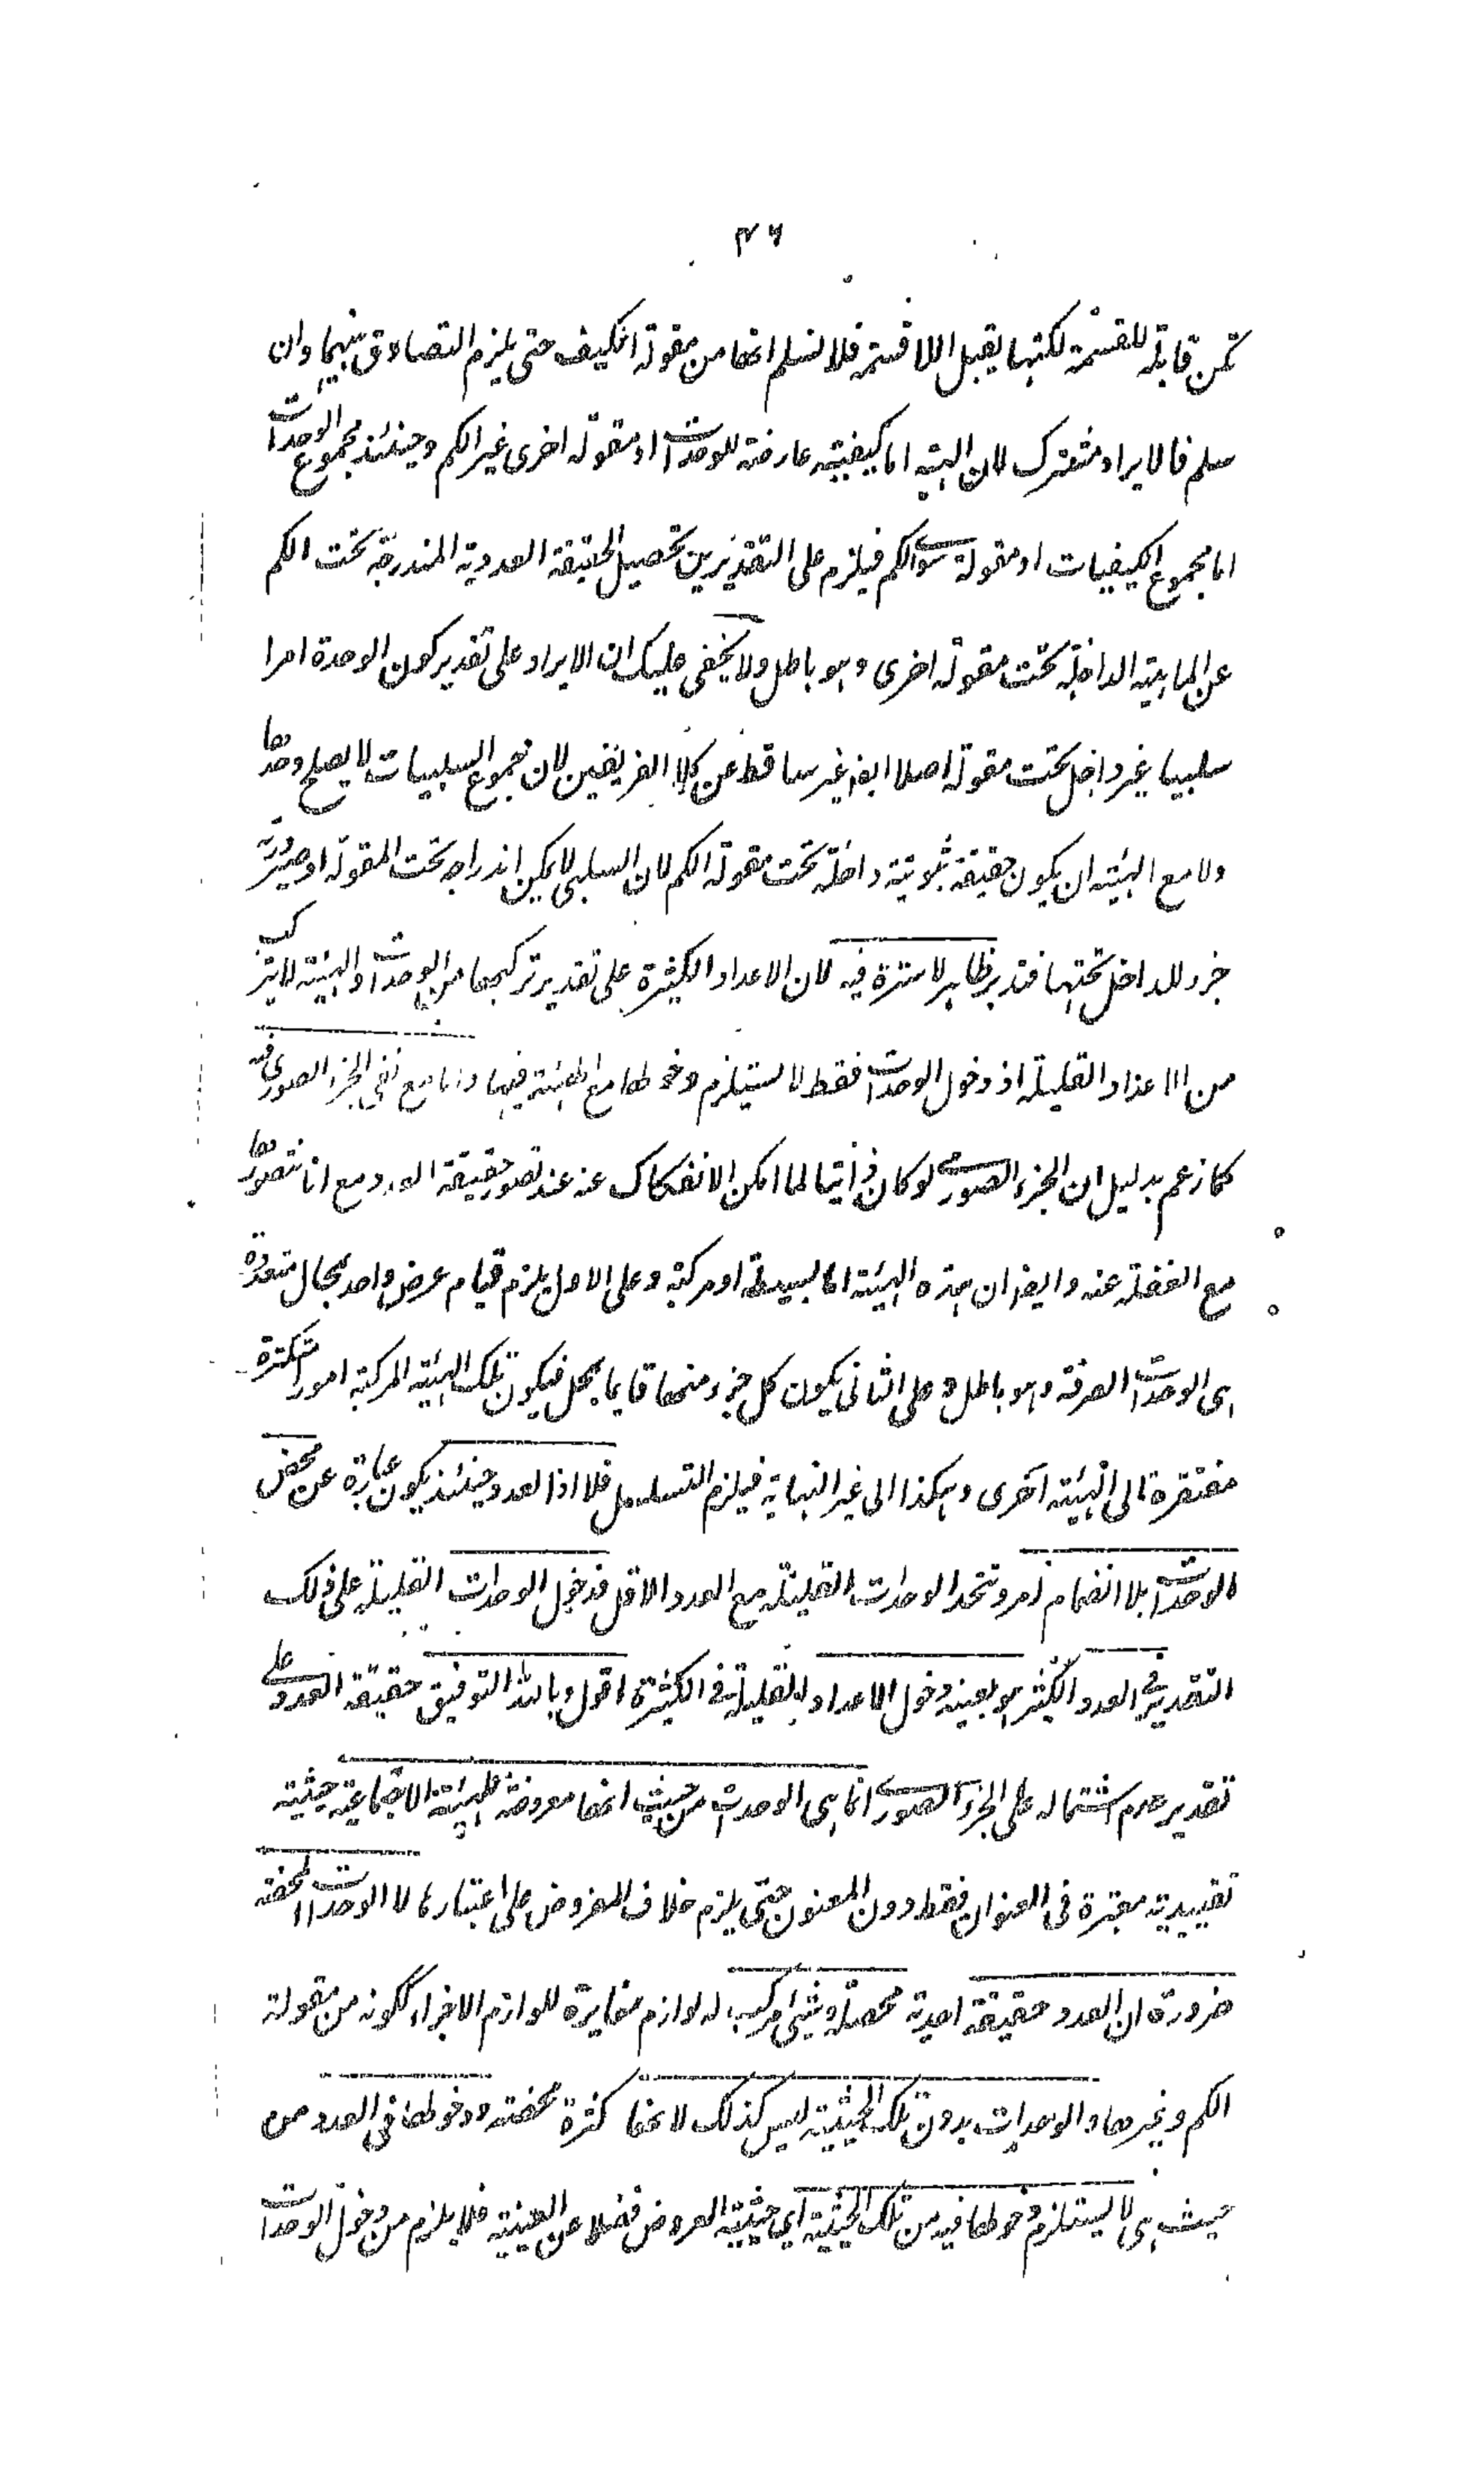 ٤٦
تكن قابلة للقسمة لكنها يقبل اللاقسمة فلا نسلم انها من مقولة الكيف حتى يلزم التصادق بينهما وان
سلم فالايراد مشترك لان الهيئة اما كيفية عارضة للوحدات او مقولة اخرى غير الكم وحينئذ مجموع الوحدات
اما مجموع الكيفيات او مقولة سوى الكم فيلزم على التقديرين تحصيل الحقيقة العددية المندرجة تحت الكم
عن الماهية الداخلة تحت مقولة اخرى وهو باطل ولا يخفى عليك ان الايراد على تقدير كون الوحدة امرا
سلبيا غير داخل تحت مقولة اصلا ايضا غير ساقط عن كلا الفريقين لان مجموع السلبيات لا يصلح وحدها
ولا مع الهيئة ان يكون حقيقة ثبوتية داخلة تحت مقولة الكم لان السلبي لا يمكن اندراجه تحت المقولة او صيرورته
جزء للداخل تحتها فتدبر ظاهر لا سترة فيه لان الاعداد الكثيرة على تقدير تركبها من الوحدات والهيئة لا يتركب
من الاعداد القليلة اذ دخول الوحدات فقط لا يستلزم دخولها مع الهيئة فيها واما مع نفي الجزء الصوري فيه
كما زعم بدليل ان الجزء الصوري لو كان ذاتيا لما امكن الانفكاك عنه عند تصور حقيقة العدد مع انا نتصورها
مع الغفلة عنه وايضا ان هذه الهيئة اما بسيطة او مركبة وعلى الاول يلزم قيام عرض واحد بمحال متعددة
هى الوحدات الصرفة وهو باطل وعلى الثانى يكون كل جزء منها قايما بمحل فيكون تلك الهيئة المركبة امورا متكثرة
مفتقرة الى الهيئة اخرى وهكذا الى غير النهاية فيلزم التسلسل فلا اذا العدد حينئذ يكون عبارة عن محض
الوحدات بلا انضمام امر وتتحد الوحدات القليلة مع العدد الاقل فدخول الوحدات القليلة على ذلك
التقدير في العدد الكثير هو بعينه دخول الاعداد القليلة في الكثيرة اقول وبالله التوفيق حقيقة العدد على
تقدير عدم اشتماله على الجزء الصوري انما هى الوحدات من حيث انها معروضة للهيئة الاجتماعية حيثية
تقييدية معتبرة فى العنوان فقط دون المعنون حتى يلزم خلاف المفروض على اعتبارها لا الوحدات المحضة
ضرورة ان العدد حقيقة احدية محصلة وشيئى مركب له لوازم مغايرة للوازم الاجزاء ككونه من مقولة
الكم وغيرها والوحدات بدون تلك الحيثية ليس كذلك لانها كثرة محضة ودخولها فى العدد من
حيث هى لا يستلزم دخولها فيه من تلك الحيثية اي حيثية العروض فضلا عن العينية فلا يلزم من دخول الوحدات